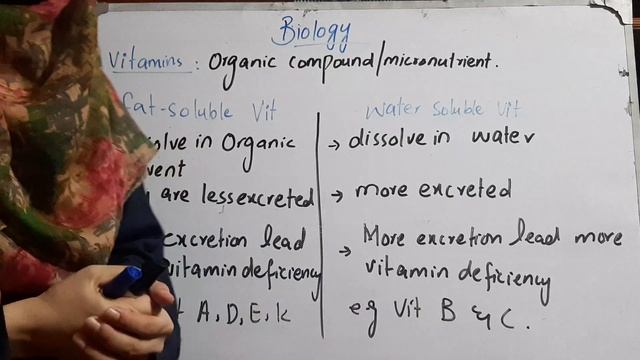 Biology
Vitamins : Organic compound/micronutrient.
fat-soluble Vit
Water soluble Vit
in Organic
→ dissolve in water
are less excreted
→ more excreted
excretion lead
vitamin deficiency
→ More excretion lead more
vitamin deficiency
A, D, E, K
eg Vit B & C.